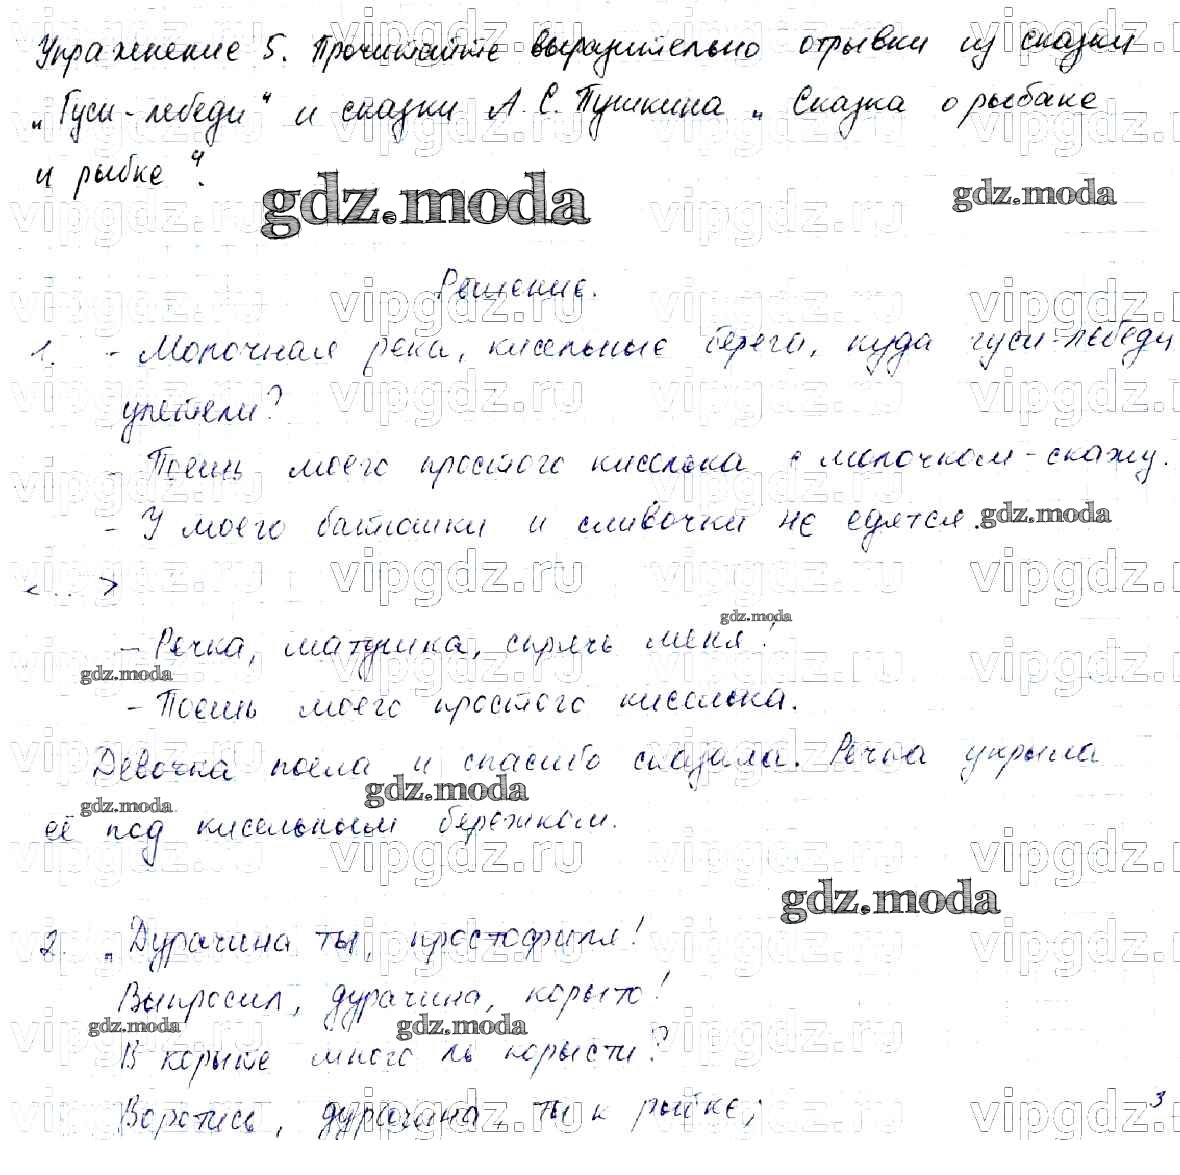 Упражнение 5. Прочитайте выразительно отрывки из сказки
„Гуси-лебеди“ и сказки А.С. Пушкина „Сказка о рыбаке
и рыбке“.
gdz.moda
gdz.moda
Решение.
1. - Молочная река, кисельные берега, куда гуси-лебеди
улетели?
- Поешь моего простого киселька с молочком - скажу.
- У моего батюшки и сливочки не едятся.
gdz.moda
<...>
gdz.moda
- Речка, матушка, спрячь меня!
gdz.moda
- Поешь моего простого киселька.
Девочка поела и спасибо сказала. Речка укрыла
gdz.moda
gdz.moda
её под кисельным бережком.
gdz.moda
2. „Дурачина ты, простофиля!
Выпросил, дурачина, корыто!
gdz.moda
gdz.moda
В корыте много ль корысти?
Воротись, дурачина, ты к рыбке;
3
vipgdz.ru